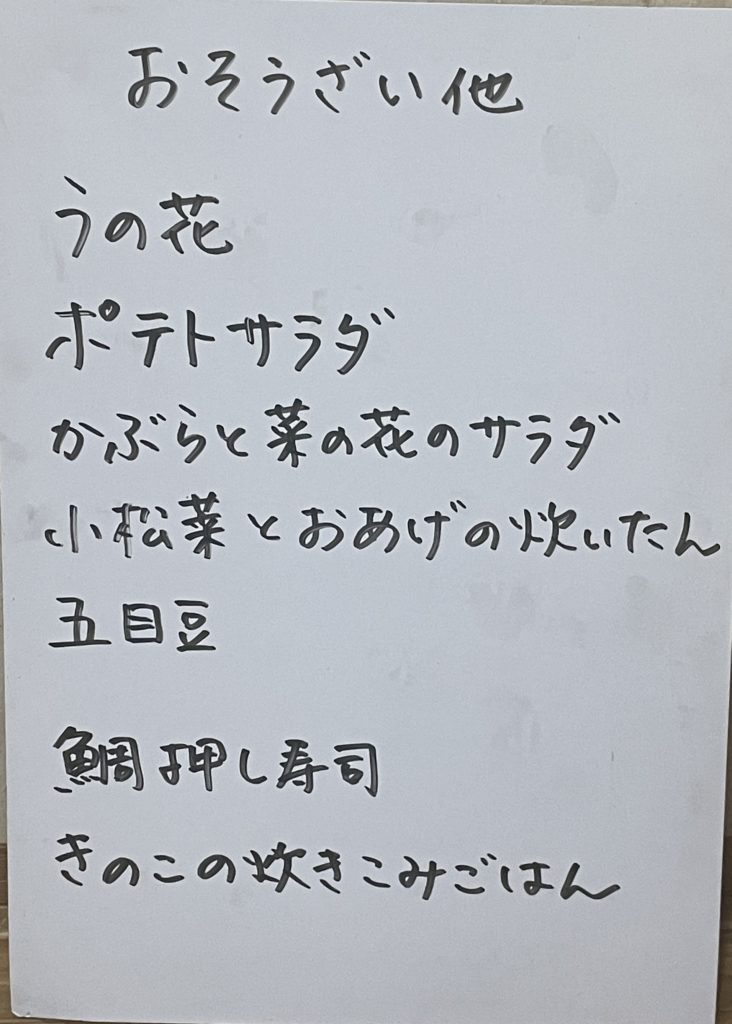 おそうざい他
うの花
ポテトサラダ
かぶらと菜の花のサラダ
小松菜とおあげの炊いたん
五目豆
鯛押し寿司
きのこの炊きこみごはん